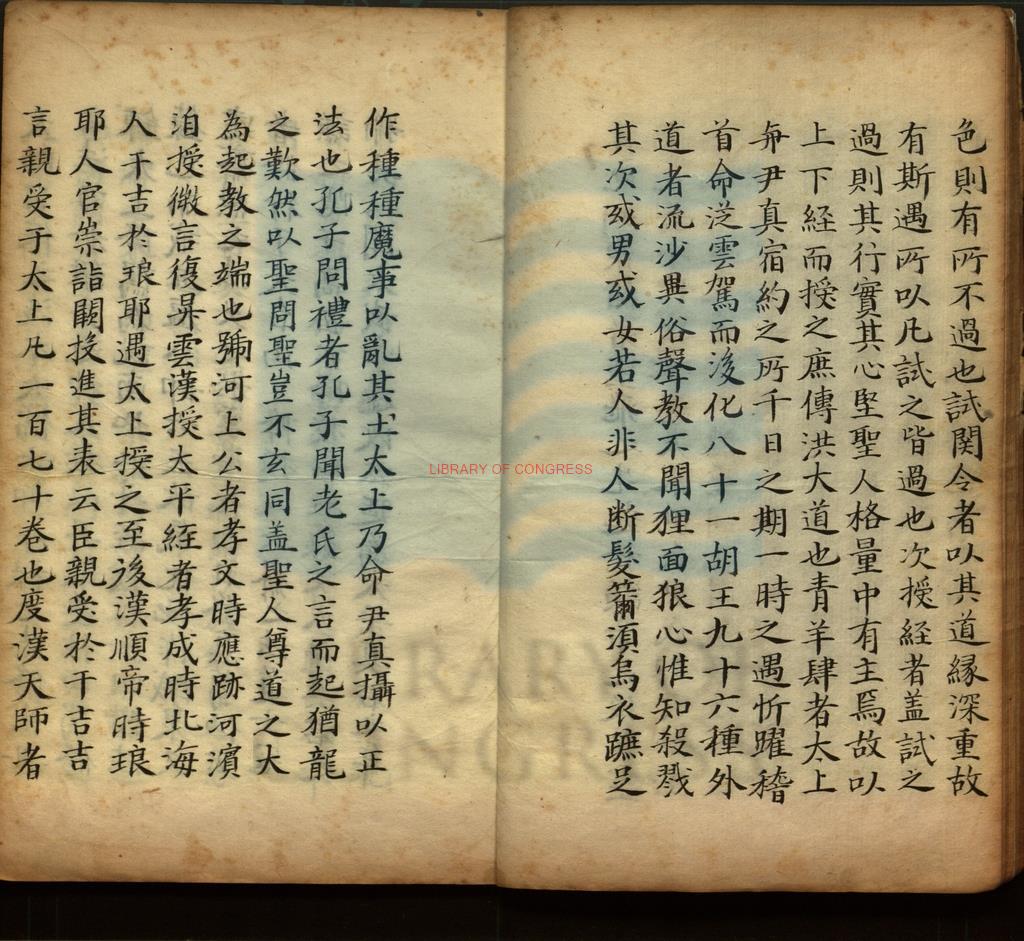 色則有所不過也試関令者以其道緣深重故
有斯遇所以凢試之皆過也次授経者盖試之
過則其行實其心堅聖人格量中有主焉故以
上下経而授之庶傳洪大道也青羊肆者太上
與尹真宿約之所千日之期一時之遇忻躍稽
首命泛雲駕而後化八十一胡王九十六種外
道者流沙異俗聲教不聞狸面狼心惟知殺戮
其次或男或女若人非人断髮籋湏烏衣蹠足
作種種魔事以亂其圡太上乃命尹真攝以正
法也孔子問禮者孔子聞老氏之言而起猶龍
之歎然以聖問聖豈不玄同盖聖人尊道之大
為起教之端也號河上公者孝文時應跡河濱
洎授微言復昇雲漢授太平経者孝成時北海
人干吉於琅耶遇太上授之至後漢順帝時琅
耶人官崇詣闕投進其表云臣親受於干吉吉
言親受于太上凢一百七十卷也度漢天師者
LIBRARY OF CONGRESS